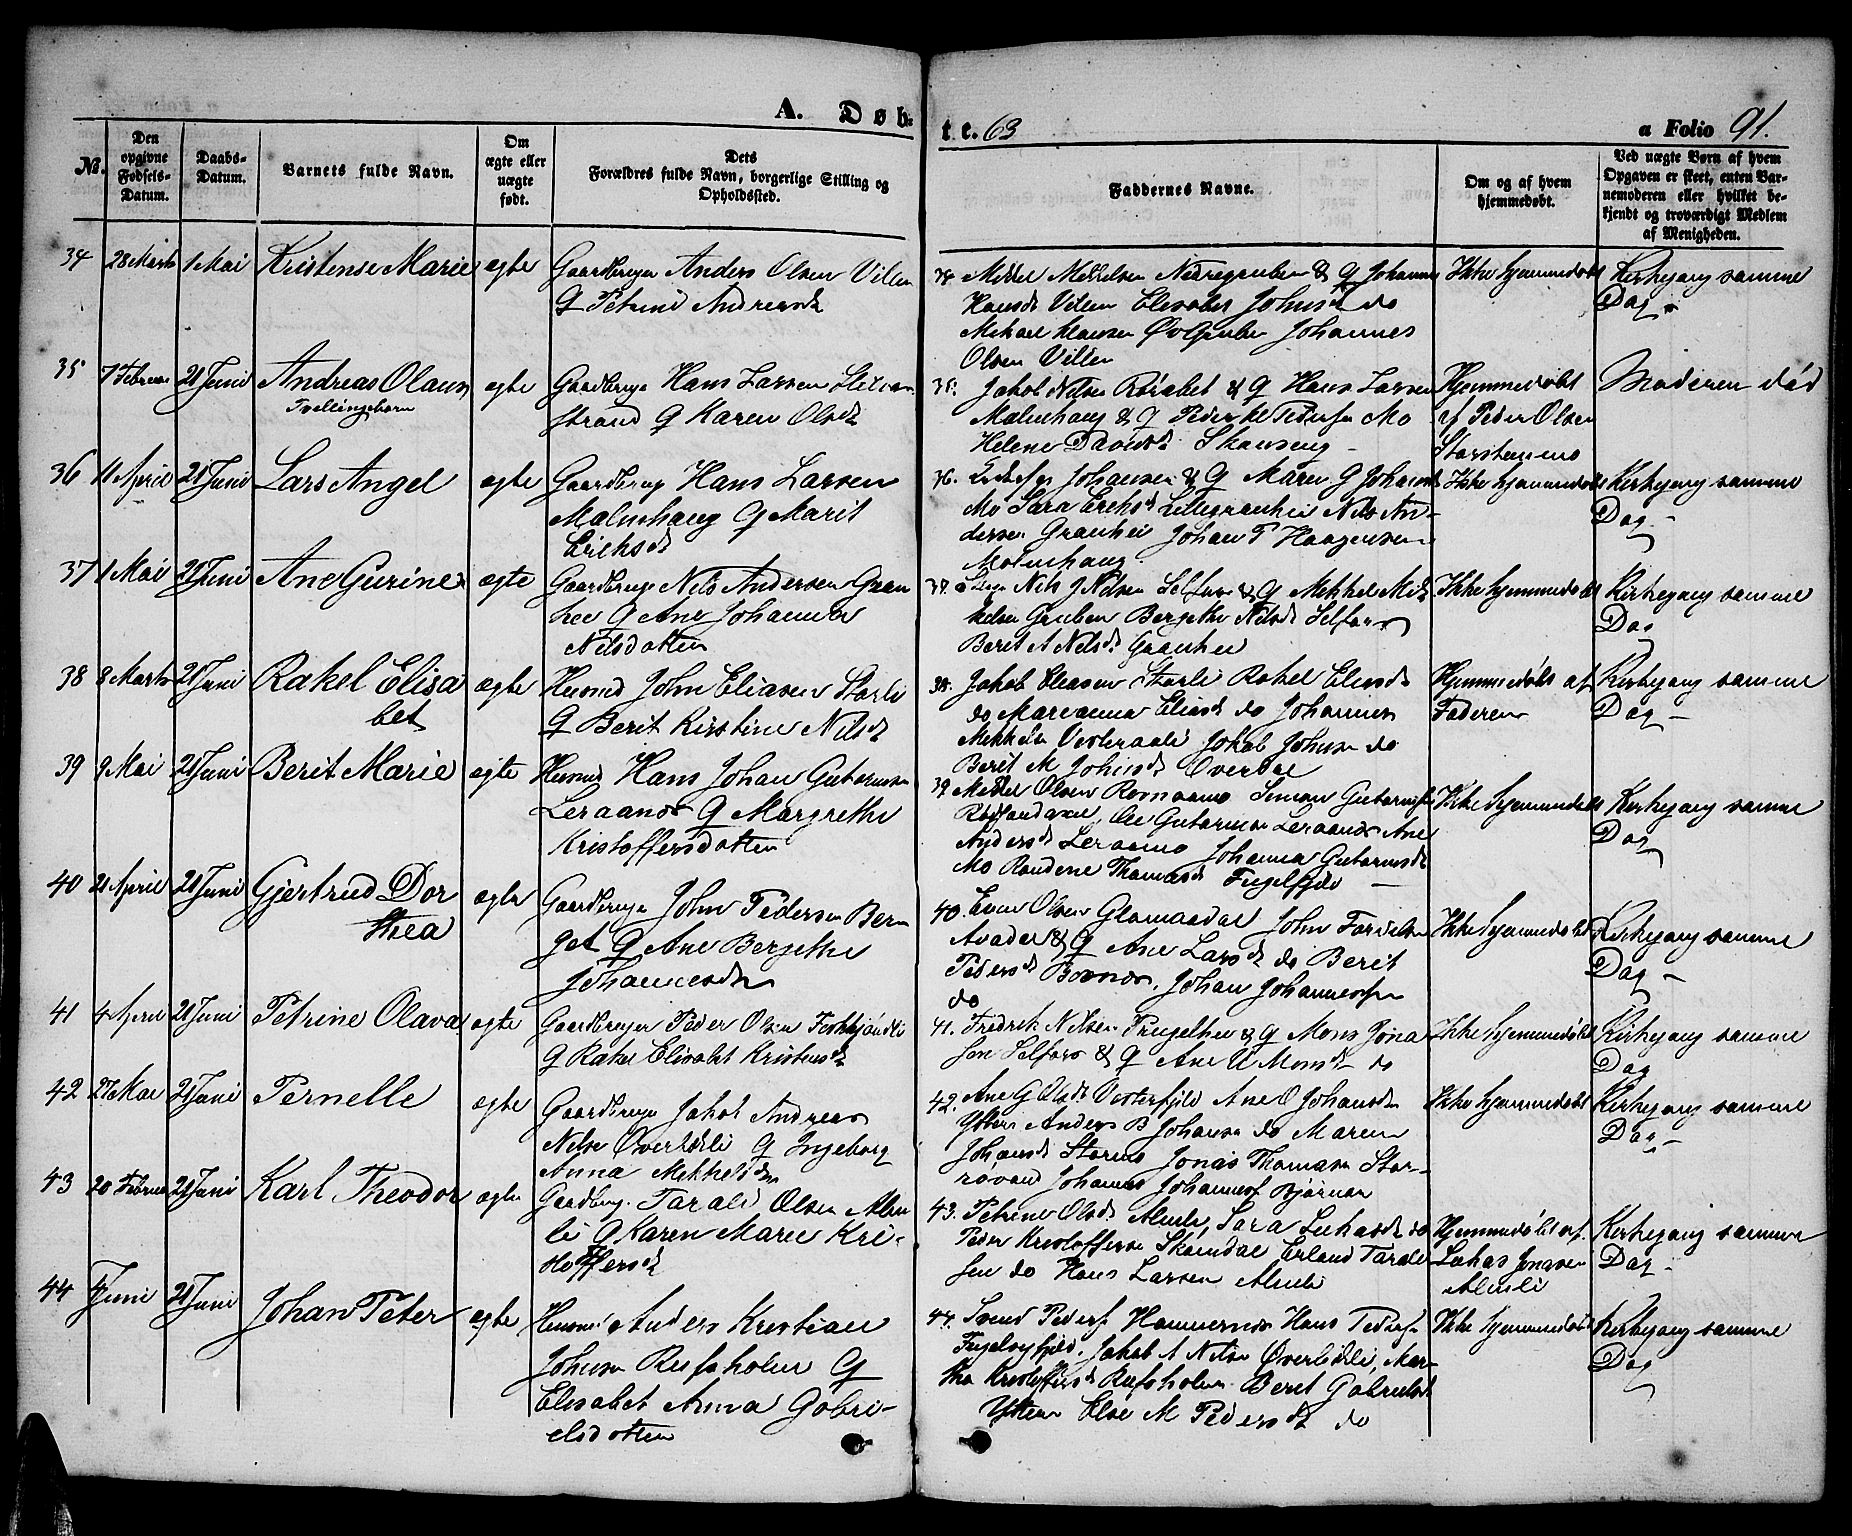 A. Døb-
te. 63
a Folio 91.
No.
Den opgivne Fødsels-Datum.
Daabs-Datum.
Barnets fulde Navn.
Om ægte eller uægte født.
Dets Forældres fulde Navn, borgerlige Stilling og Opholdssted.
Faddernes Navne.
Om og af hvem hjemmedøbt.
Ved uægte Børn af hvem Opgaven er skeet, enten Barnemoderen eller hvilket bekjendt og troværdigt Medlem af Menigheden.
34 28 Marts 1 Mai Kristense Marie ægte Gaardbruger Anders Olsen Villen
G Petrine Andreasd
34 Mikkel Mikkelsen Nedregruben & G Johanna
Hansd Villen Elisabet Johnsd do
Mikael Klausen Øv Gruben Johannes
Olsen Villen
Ikke hjemmedøbt
Kirkegang samme
Dag
35 7 Februar 21 Juni Andreas Olaus
Tvellingebarn
ægte Gaardbruger Hans Larsen
strand G Karen Olsd
35. Jakob Nilsen & G Hans Larsen
Malmhaug & G Peder Pedersen Mo
Helene Davidsd
Hjemmedøbt
af Peder Olsen
Moderen død
36 11 April 21 Juni Lars Angel ægte Gaardbrug Hans Larsen
Malmhaug G Marit
Eriksd
36. Johansen & G Maren G Johansd
Mo Sara Eriksd Lillegranhei Nils An-
dersen Granhei Johan P Haagensen
Malmhaug
Ikke hjemmedøbt
Kirkegang samme
Dag
37 1 Mai 21 Juni Ane Gurine ægte Gaardbrug Nils Andersen Gran
hei G Ane Johanna
Nilsdatter
37. Nils J Nilsen Selfors & G Mikkel Mik
kelsen Gruben Bergethe Nilsd Selfors
Berit A Nilsd Granhei
Ikke hjemmedøbt
Kirkegang samme
Dag
38 8 Marts 21 Juni Rakel Elisa
bet
ægte Husmd John Eliasen Storli
G Berit Kirstine Nilsd
38. Jakob Eliasen Storli Rakel Eliasd
do Marianna Eliasd do Johannes
Mikkels Jakob Johnsen do
Berit M Johnsd Øverdal
Hjemmedøbt af
Faderen
Kirkegang samme
Dag
39 9 Mai 21 Juni Berit Marie ægte Husmd Hans Johan Gutormsen
Leraanes G Margrethe
Kristoffersdatter
39 Olsen Simon Gutormsen
Ole Gutormsen Leraanes Ane
Andersd Leraamo Johanna Gutormsd
Mo Thomasd Fugelfjeld
Ikke hjemmedøbt
Kirkegang samme
Dag
40 21 April 21 Juni Gjertrud Dor
thea
ægte Gaardbruger John Pedersen Ber
get G Ane Bergethe
Johannesd
40. Even Olsen Glomaadal John
& G Ane Larsd do Berit
Pedersd Johan Johannesen
do
Ikke hjemmedøbt
Kirkegang samme
Dag
41 4 April 21 Juni Petrine Olava ægte Gaardbruger Peder Olsen
G Rakel Elisabet Kristensd
41. Fredrik Nilsen & G Mons Jona
sen Selfors & G Ane U Monsd do
Ikke hjemmedøbt
Kirkegang samme
Dag
42 27 Mai 21 Juni Pernelle ægte Gaardbruger Jakob Andreas
Nilsen Øverlidli G Ingeborg
Anna Mikkelsd
42. Ane G Olsd Vesterfjeld Ane O Johansd
Ytteren Anders B Johansen do Maren
Johansd Jonas Thomasen Stor-
Johannes Johannesen
Ikke hjemmedøbt
Kirkegang samme
Dag
43 20 Februar 21 Juni Karl Theodor ægte Gaardbrug. Tarald Olsen Almli
G Karen Marie Kri-
stoffersd
43. Petrine Olsd Almli, Sara Lukasd do
Peder Kristoffersen Erland Tarald
sen do Hans Larsen Almli
Hjemmedøbt af
Lukas Jonasen
Almli
Kirkegang samme
Dag
44 4 Juni 21 Juni Johan Peter ægte Husmd Anders Kristian
Johnsen Rufsholm G
Elisabet Anna Gabri-
elsdatter
44. Svend Peders Hammernes Hans Peders
Fugelfjeld, Jakob A Nilsen Øverlidli, Mar-
tha Kristoffersd Rufsholm Berit Gabrielsd
Ytteren Else M Pedersd do
Ikke hjemmedøbt
Kirkegang samme
Dag